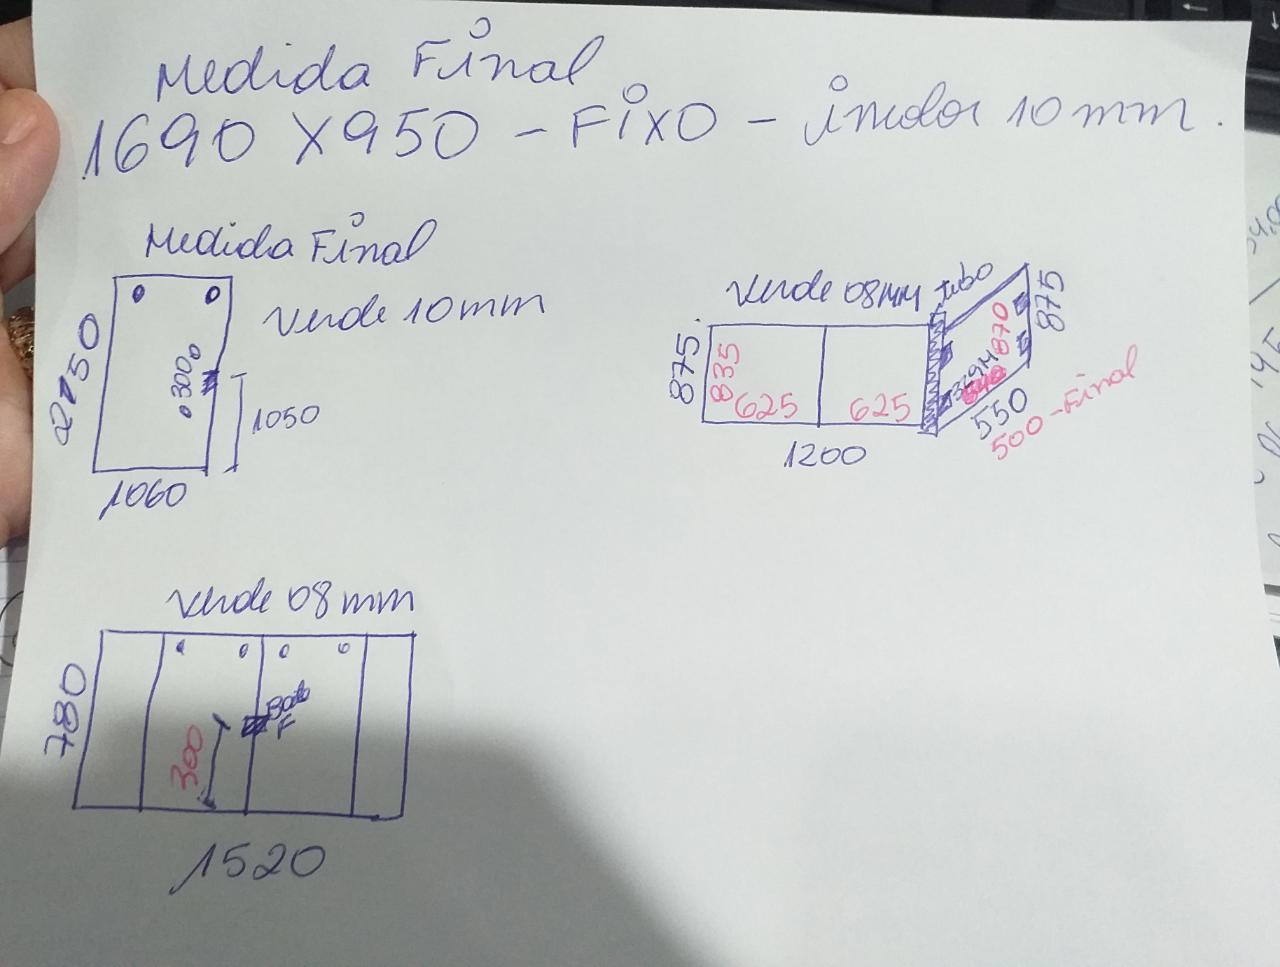 Medida Final
1690 X 950 - FIXO - incolor 10 mm.
Medida Final
Verde 10 mm
300
1050
1060
Verde 08 mm tubo
875
835
625
625
1200
870
875
550
500 - Final
Verde 08 mm
780
300
F
1520